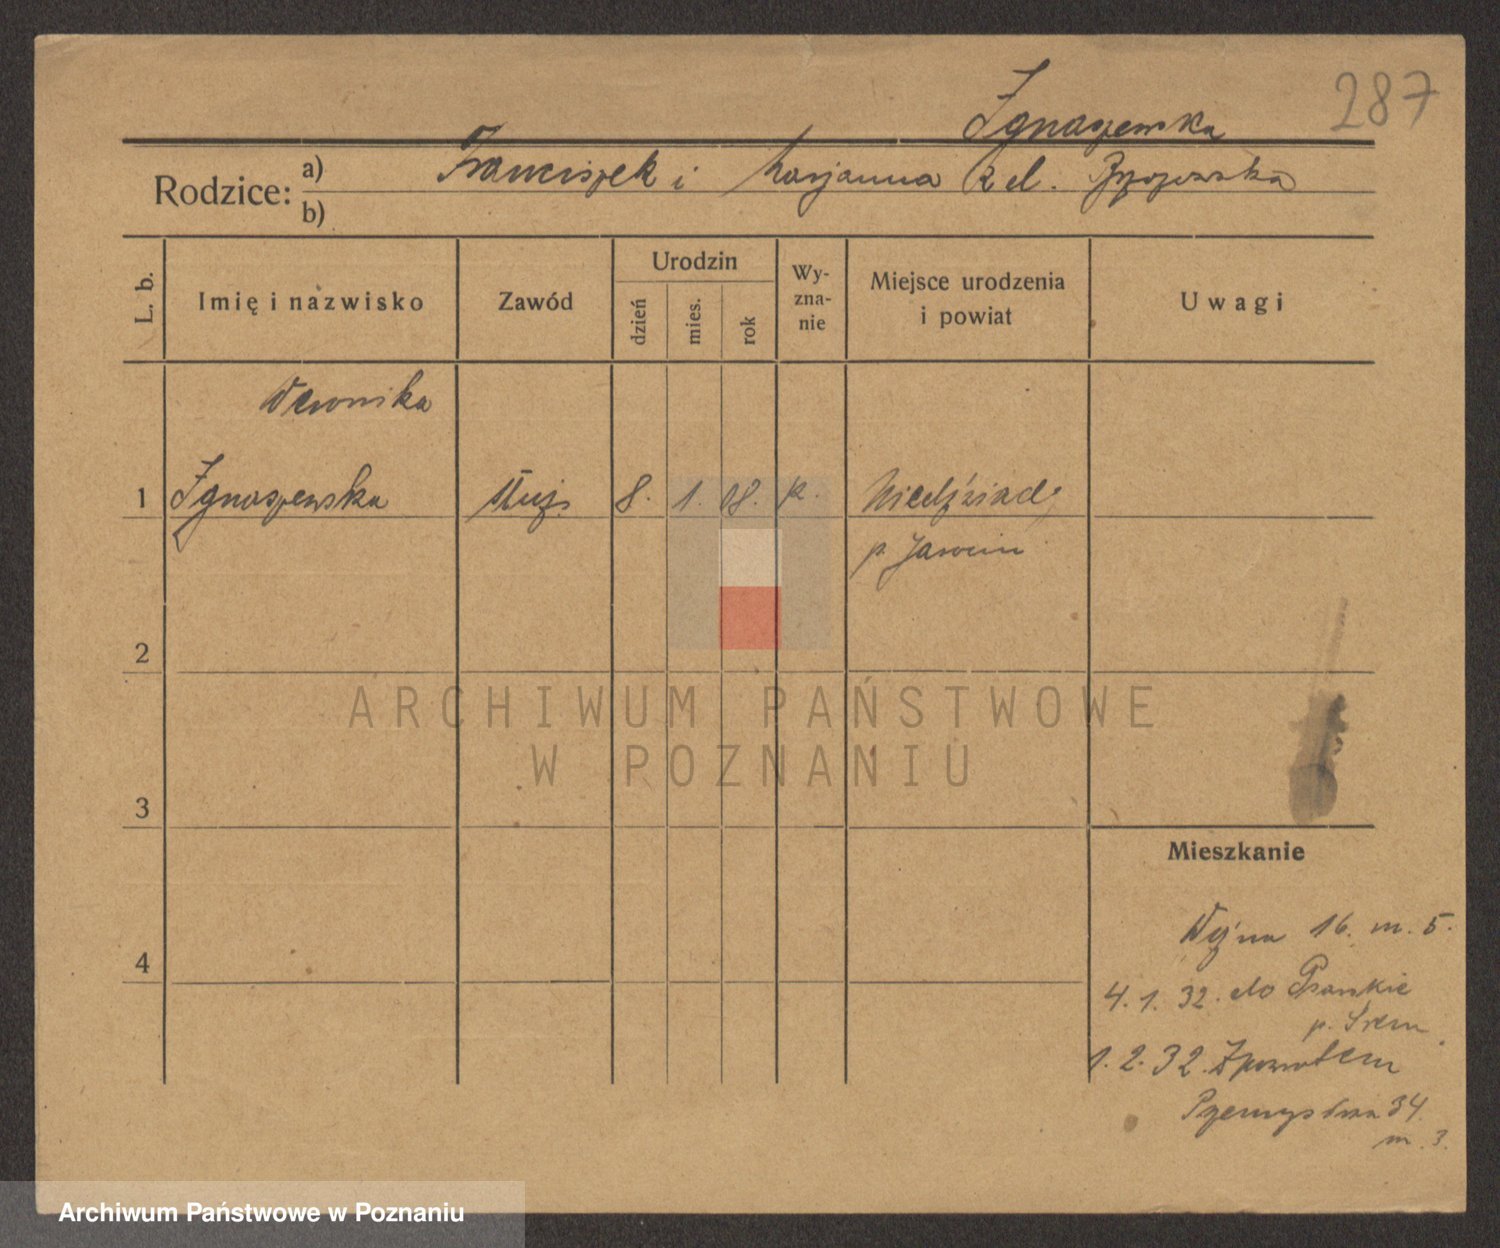 Ignaszewska 287
Rodzice: a) Franciszek i Marjanna R el.
b)
L. b.
Imię i nazwisko
Zawód
Urodzin
dzień
mies.
rok
Wy-
zna-
nie
Miejsce urodzenia
i powiat
Uwagi
Weronika
1 Ignaszewska służ. 8. 1. 08. k.
p. Jarocin
2
3
4
ARCHIWUM PAŃSTWOWE
W POZNANIU
Mieszkanie
16. m. 5.
4. 1. 32. do Psarskie
p. Śrem
1. 2. 32. Zpowrotem
34
m. 3.
Archiwum Państwowe w Poznaniu